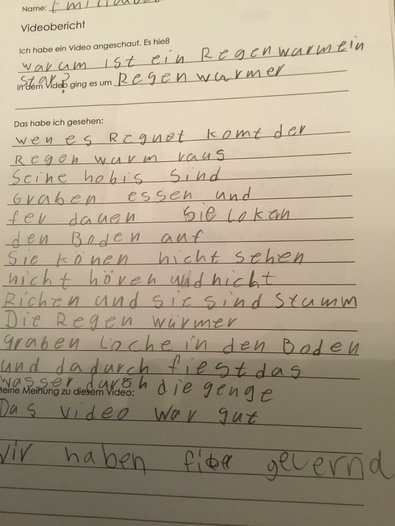 Name: Emil
Videobericht
Ich habe ein Video angeschaut. Es hieß
warum ist ein Regenwurm ein
star?
In dem Video ging es um Regenwurmer
Das habe ich gesehen:
wen es Regnet komt der
Regen wurm raus
Seine hobis sind
Graben essen und
fer dauen Sie loken
den Boden auf
Sie könen nicht sehen
nicht hören und nicht
Richen und sie sind stumm
Die Regen würmer
graben Löche in den Boden
und dadurch fiest das
wasser durch die genge
Meine Meinung zu diesem Video:
Das video war gut
wir haben gelernd